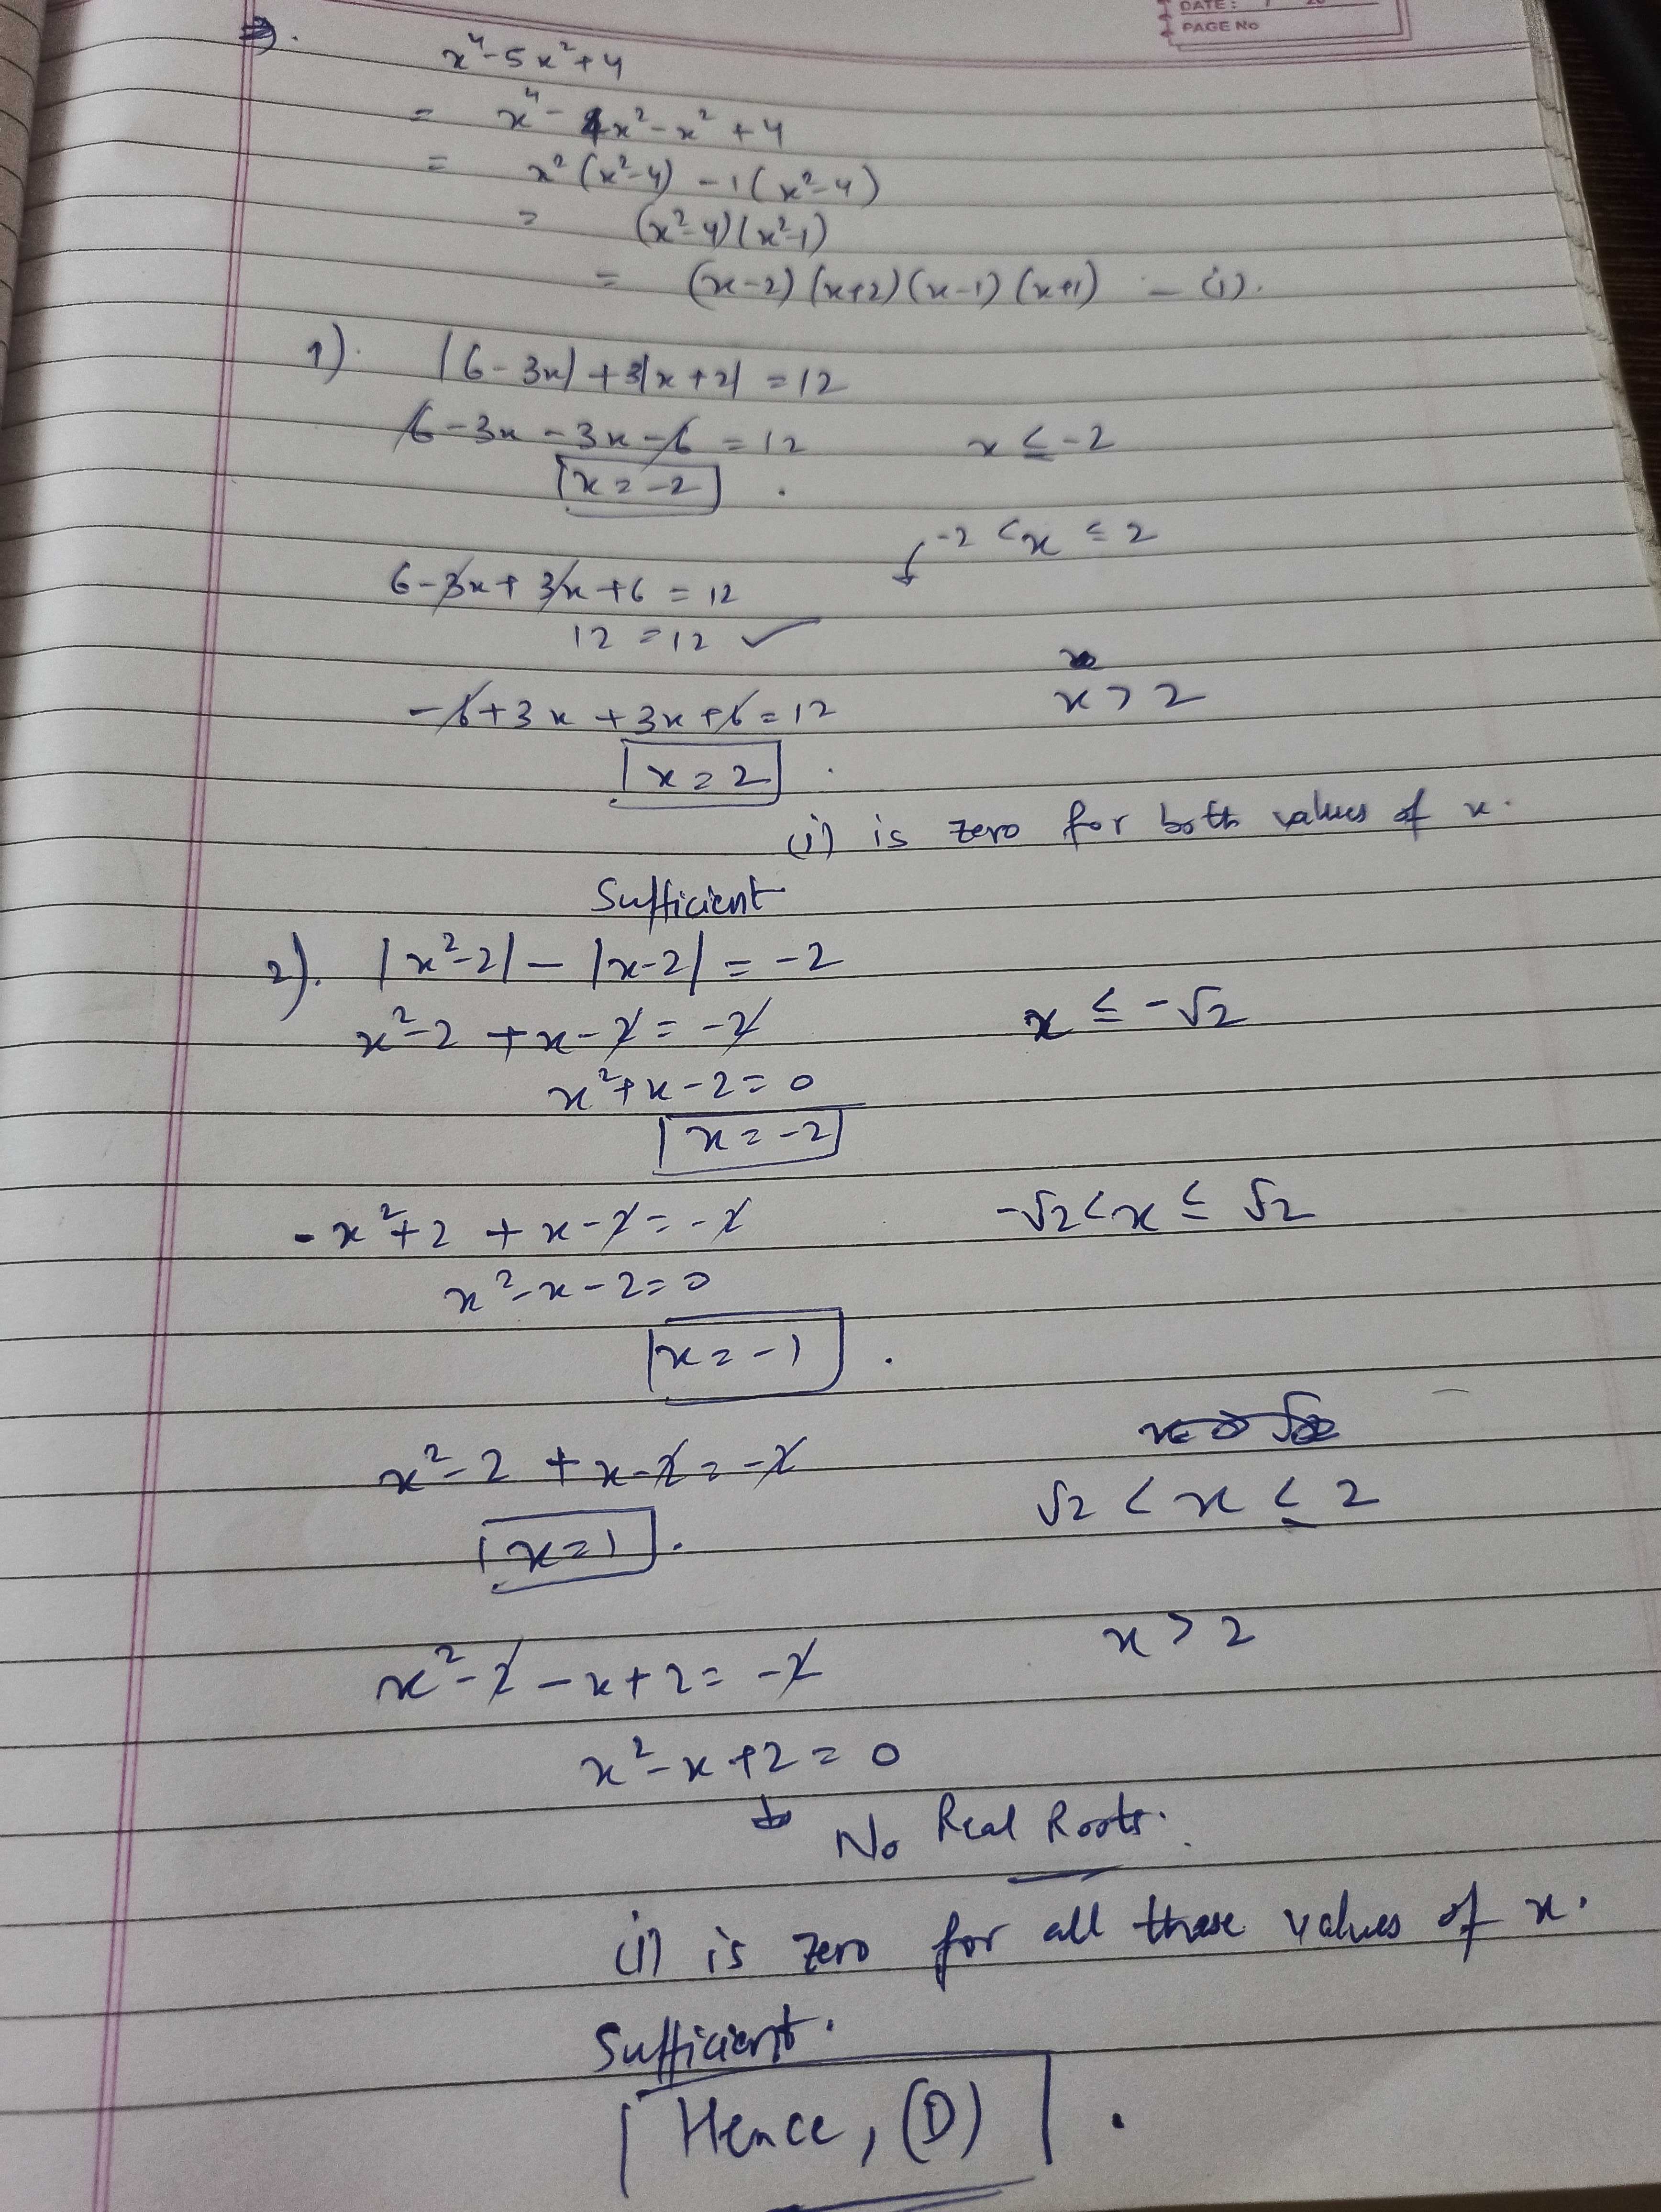 DATE: / 20
PAGE No
⇒.
x⁴-5x²+4
= x⁴-4x²-x²+4
= x²(x²-4) -1(x²-4)
= (x²-4)(x²-1)
= (x-2)(x+2)(x-1)(x+1) - (i).
1). |6-3x|+3|x+2| =12
6-3x-3x-6 =12 x ≤ -2
x=-2 .
-2 <x ≤ 2
6-3x+3x+6 =12
12 =12 ✓
-6+3x+3x+6=12 x>2
x=2 .
(i) is zero for both values of x.
Sufficient
2). |x²-2|-|x-2| = -2
x²-2 +x-2 = -2 x ≤ -√2
x²+x-2=0
x=-2
-x²+2 +x-2=-2 -√2<x ≤ √2
x²-x-2=0
x=-1 .
x²-2 +x-2=-2 √2 < x ≤ 2
x=1 .
x²-2-x+2=-2 x>2
x²-x+2=0
↓ No Real Roots.
(i) is zero for all these values of x.
Sufficient.
Hence, (D) .